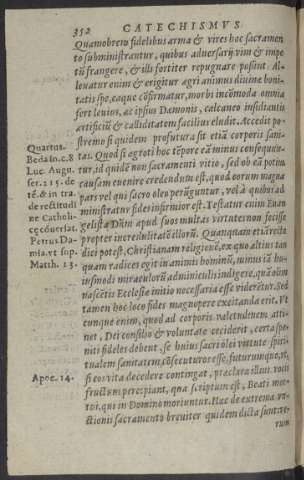 352 CATECHISMVS
Quamobrem fidelibus arma & vires hoc sacramen
to subministrantur, quibus adversarij vim & impe
tū frangere, & illi fortiter repugnare possint. Al
levatur enim & erigitur agri animus divinæ boni-
tatis spe, eaque cōfirmatus, morbi incōmoda omnia
fert levius, ac ipsius Dæmonis, calcaneo insidiantis
artificiū & calliditatem facilius eludit. Accedit po
stremo si quidem profutura sit etiā corporis sani-
tas. Quod si ægroti hoc tēpore eā minus consequun-
tur, id quidē non sacramenti vitio, sed ob eā potius
causam evenire credendum est, quod eorum magna
pars vel qui sacro oleo perūguntur, vel à quibus ad
ministratur fides infirmior est. Testatur enim Euan
gelista Dñm apud suos multas virtutes non fecisse
propter incredulitatē illorū. Quamquam etiā recte
dici potest, Christianam religionē, ex quo altius tan
quam radices egit in animis hominū, minus iā hu-
iusmodi miraculorū adminiculis indigere, quā olim
nascētis Ecclesiæ initio necessaria esse viderētur. Sed
tamen hoc loco fides magnopere excitanda erit. Vt
cunque enim, quod ad corporis valetudinem atti-
net, Dei consilio & voluntate ceciderit, certa spe
niti fideles debent, se huius sacri olei virtute spiri-
tualem sanitatem cōsecuturos esse, futurumque, vt,
si eos vita decedere contingat, præclaræ illius vocis
fructum percipiant, qua scriptum est, Beati mor-
tui, qui in Domino moriuntur. Hæc de extrema vn-
ctionis sacramento breviter quidem dicta sunt: ve-
rum
Quartus.
Beda in.c.8
Luc. Augu.
ser. 215. de
tē. & in tra.
de rectitudi
ne Catholi-
cę cōuersat.
Petrus Da-
mia. vt sup.
Matth. 13.
Apoc. 14.